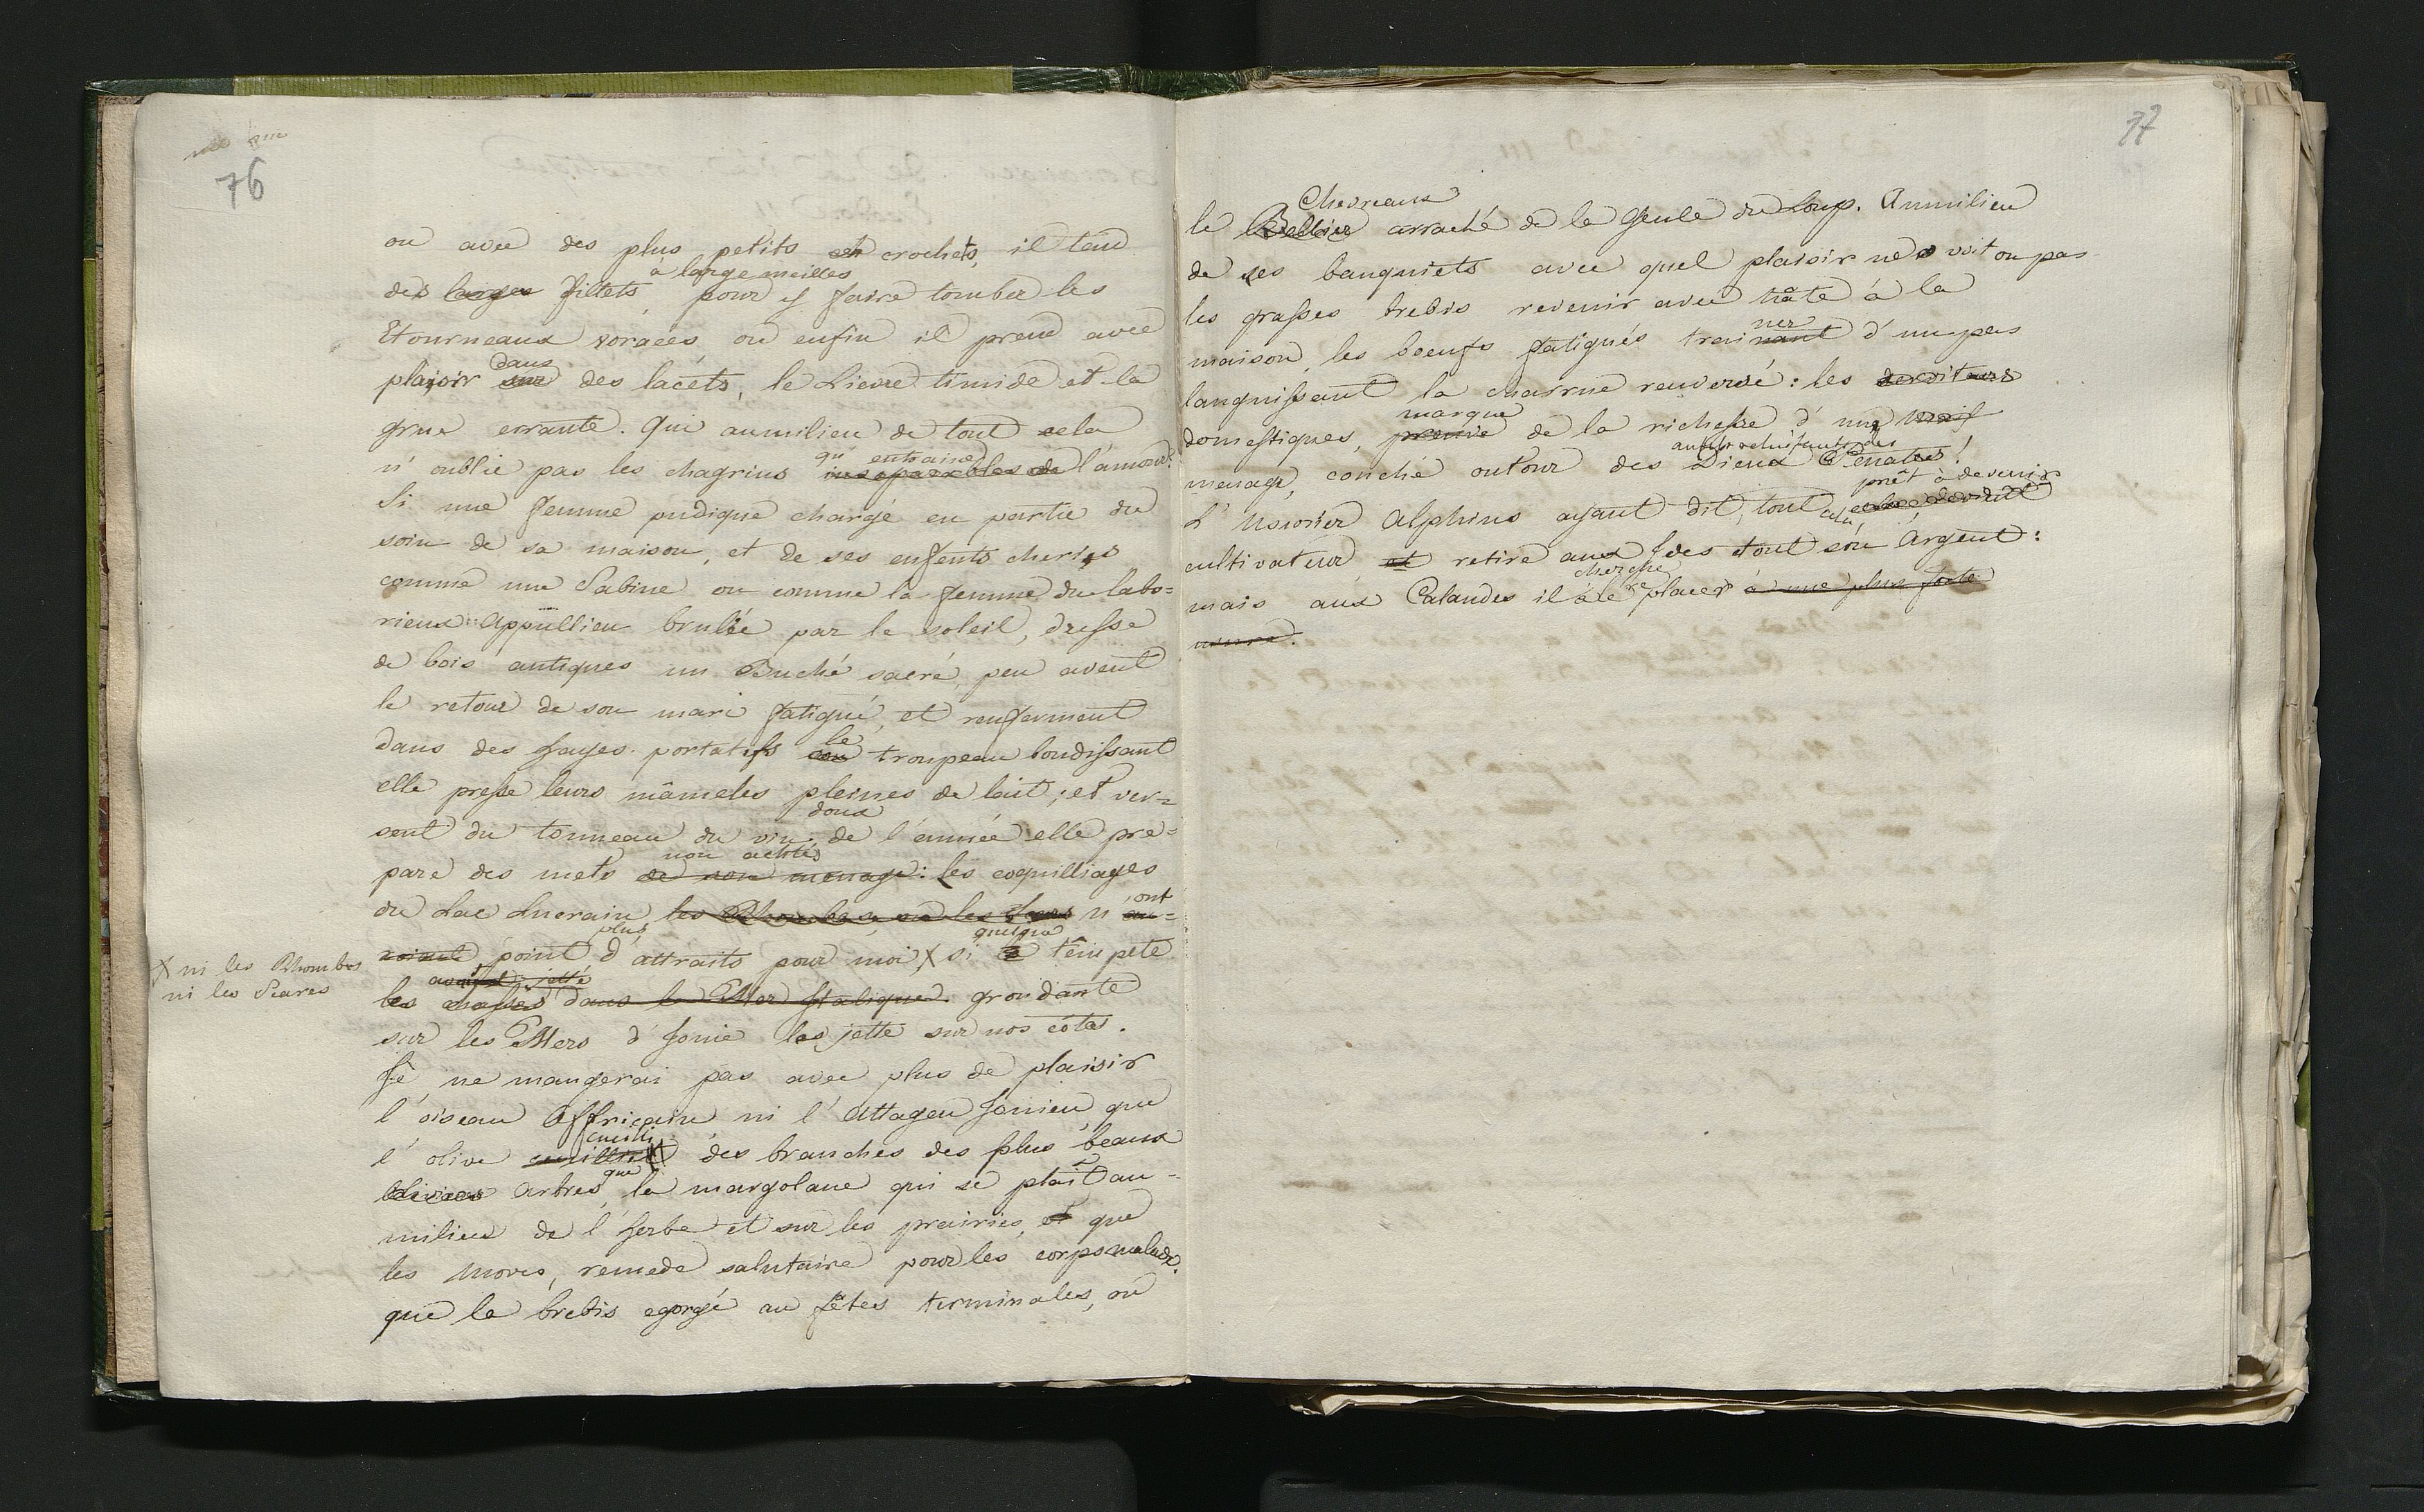 76
ou avec des plus petits crochets, il tend
des larges filtets à large mailles, pour y faire tomber les
Etourneaux voraces, ou enfin il prend avec
plaisir sur dans des lacets, le Lievre timide et la
grue errante. Qui aumilieu de tout cela
n'oublie pas les chagrins inseparables de qu'entraine l'amour?
Si une femme pudique chargé en partie du
soin de sa maison, et de ses enfents cheries
comme une Sabine ou comme la femme du labo=
rieux Appullien brulée par le soleil, dresse
de bois antiques un Buché sacré, peu avent
le retour de son mari fatigué, et renferment
dans des hayes portatifs le troupeau bondissant
elle presse leurs mâmeles pleines de lait; et ver=
sent du tonneau du vin doux de l'année elle pre=
pare des mets de son menage non achtés: les coquilliages
du Lac Lucrain, les Rhombes, ou les Scares n'ont au=
roient point plus d'attraits pour moi X si quelque têmpete
X ni les Rhombes
ni les Scares
les avoit jetté chassés dans la Mer Italique. grondante
sur les Mers d'Jonie les jette sur nos côtes.
Je ne mangerai pas avec plus de plaisir
l'oiseau Affricain ni l'Attagen Jonien que
l'olive cueillie des branches des plus beaux
oliviers arbres, que la margolane qui se plait au=
milieu de l'herbe et sur les prairies, et que
les Moves, remede salutaire pour les corps malades.
que la brebis egorgé au fêtes terminales, ou
77
le Bellier Chevreaux arraché de la Geule du Loup. Aumilieu
de ses banquiets avec quel plaisir ne voit on pas
les grasses brebis revenir avec hâte à la
maison, les boeufs fatigués trainant ner d'un pas
languissant la charrue renversé: les serviteurs
domestiques, preuve marque de la richesse d'une
menage, couché outour des Dieux Penates!
L'Usurier Alphius ayant dit, tout cela, prêt à devenir
cultivateur et retire aux Ides tout son Argent:
mais aux Calandes il cherche à le replacer à une plus forte
usure.